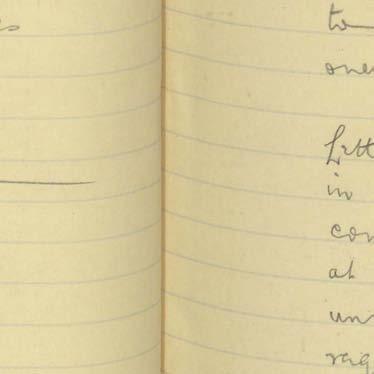 to
one
Lett
in
con
at
un
req